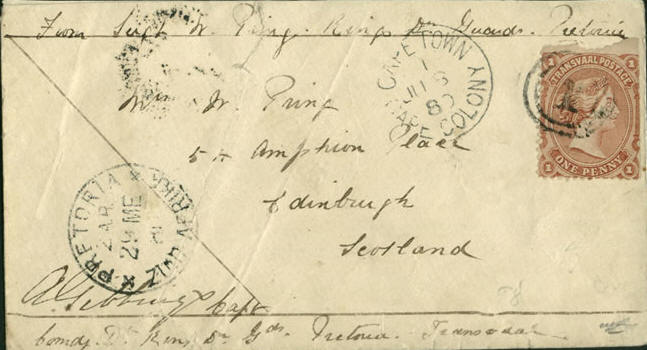 From Sergt W. Pring. Kings Dn Guards. Pretoria
CAPE TOWN
1
JU 6
80
CAPE COLONY
TRANSVAAL POSTAGE
1 1
ONE PENNY
1 1
W. Pring
5 Amphion Place
Edinburgh
Scotland
PRETORIA
ZAR
29 ME
ZUID AFRIKA
Capt
Comdg Dt Kings Dn Gds. Pretoria Transvaal